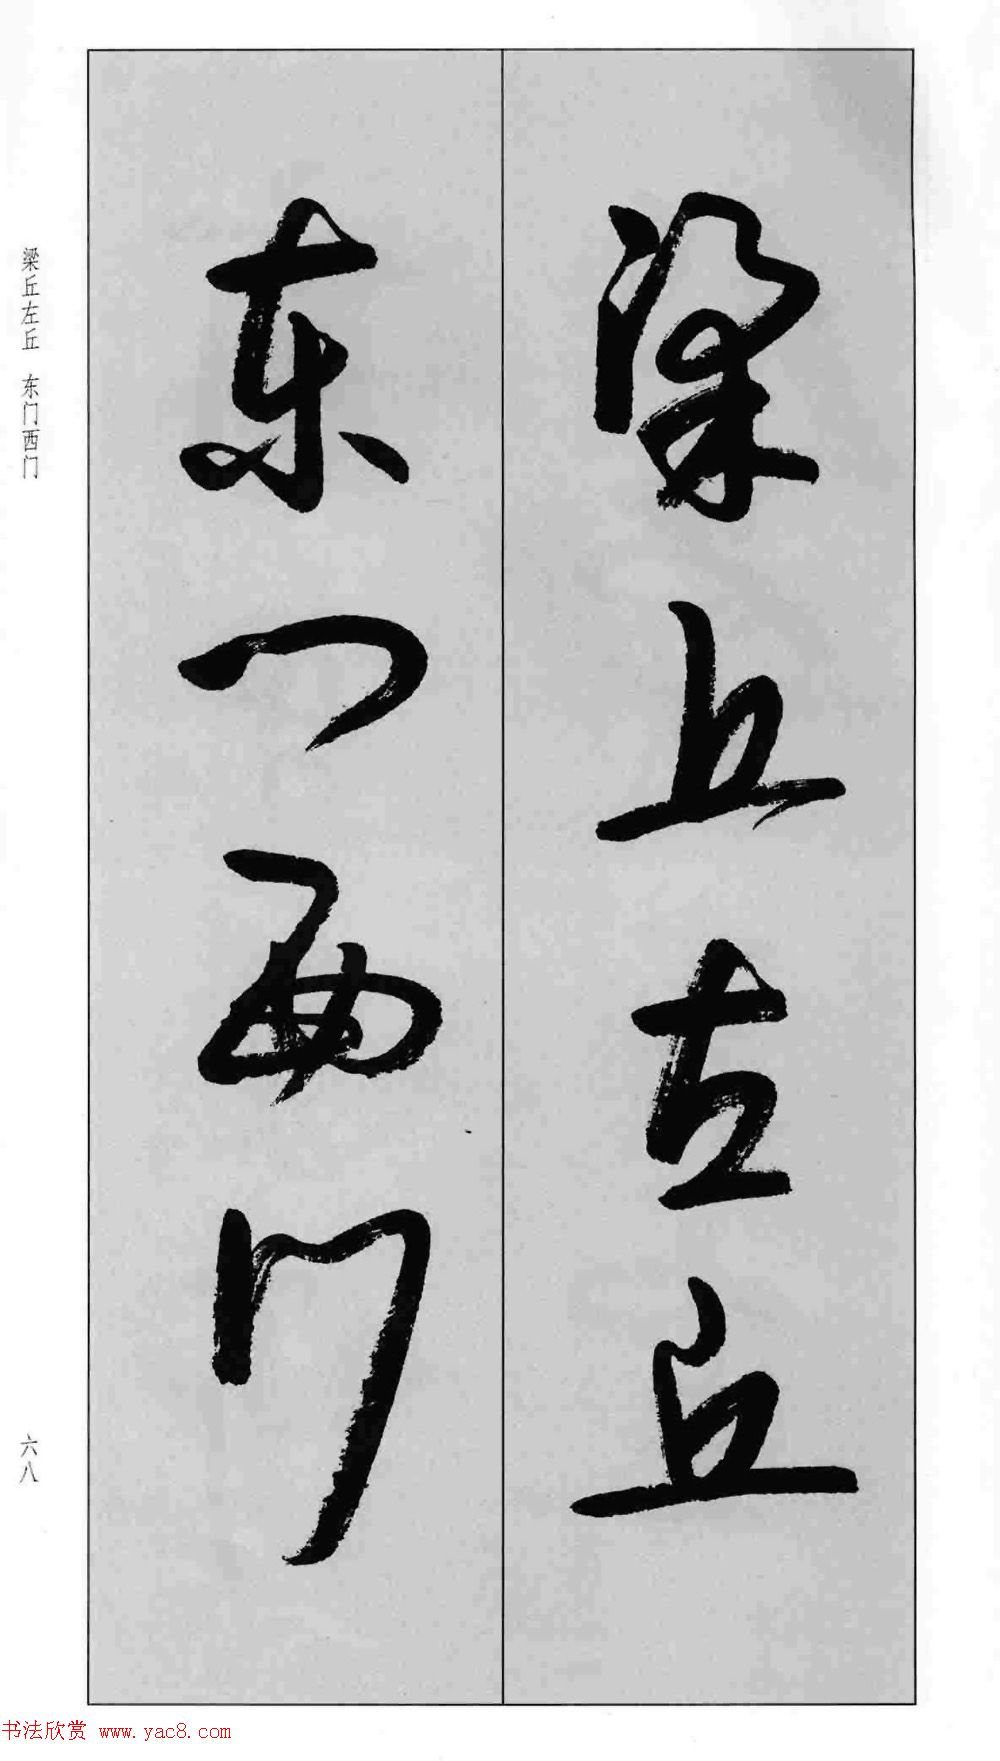 梁丘左丘
东门西门
梁丘左丘 东门西门
六八
书法欣赏 www.yac8.com